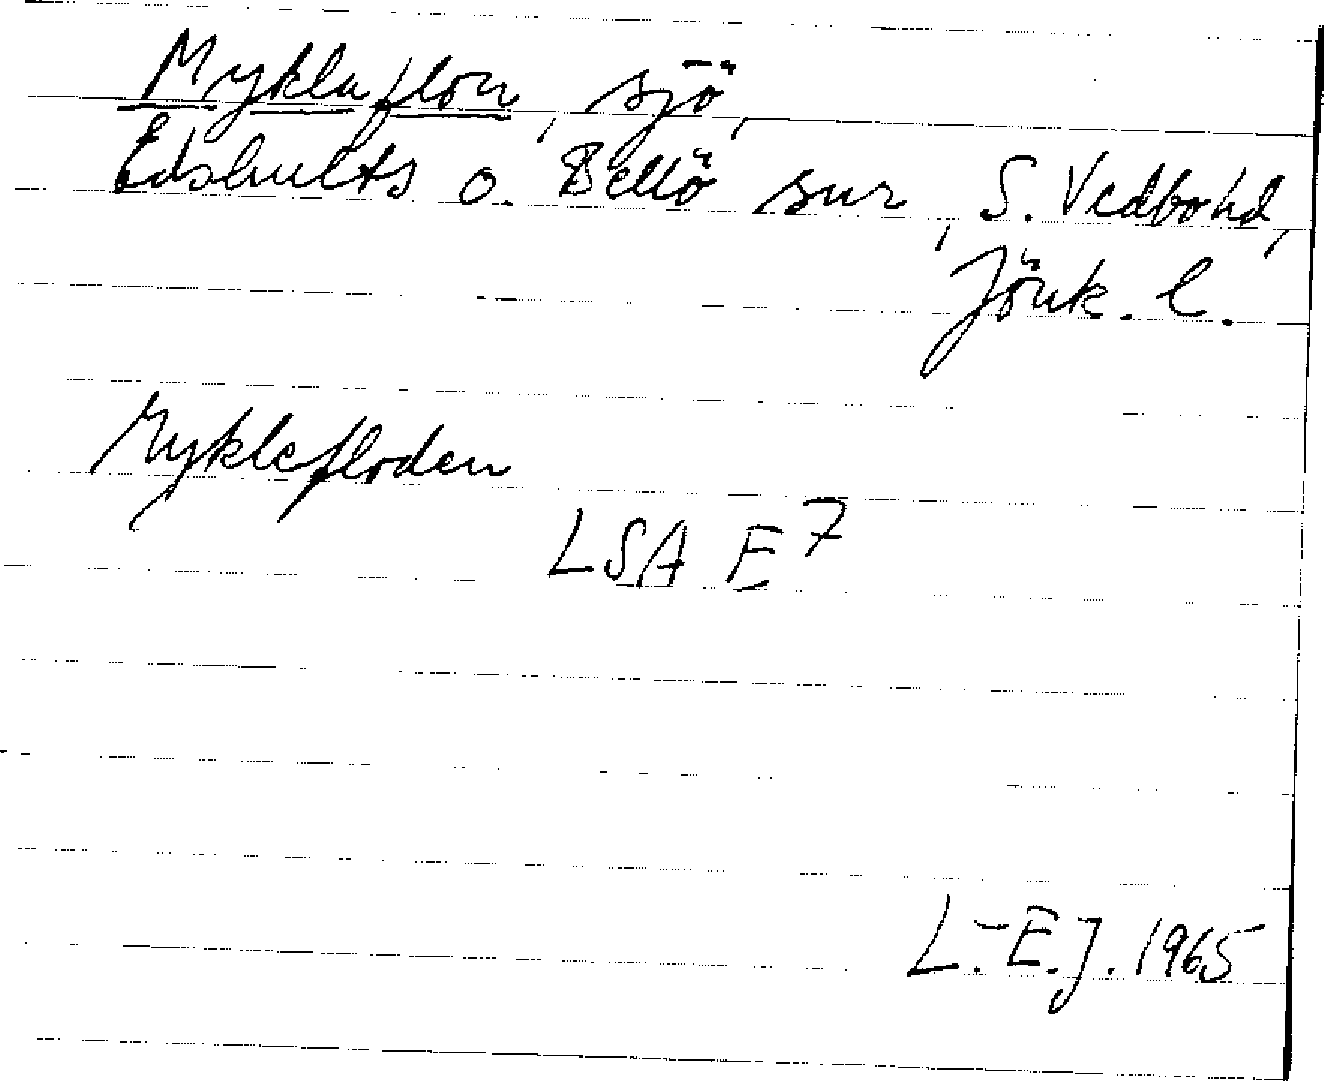 Myklaflon, sjö,
Edshults o. Bellö snr, S. Vedbo hd,
Jönk. l.
Myklefloden
LSA E7
L.-E.J. 1965